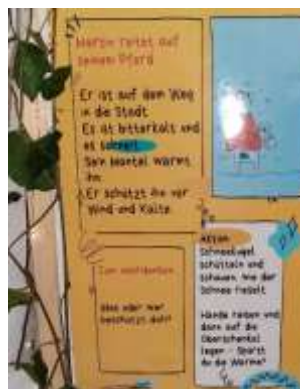 Martin reitet auf
seinem Pferd
Er ist auf dem Weg
in die Stadt
Es ist bitterkalt und
es schneit
Sein Mantel wärmt
ihn
Er schützt ihn vor
Wind und Kälte
Zum Nachdenken
Was oder wer
beschützt dich?
Aktion
Schneekugel
schütteln und
schauen, wie der
Schnee rieselt
Hände reiben und
dann auf die
Oberschenkel
legen - Spürst
du die Wärme?